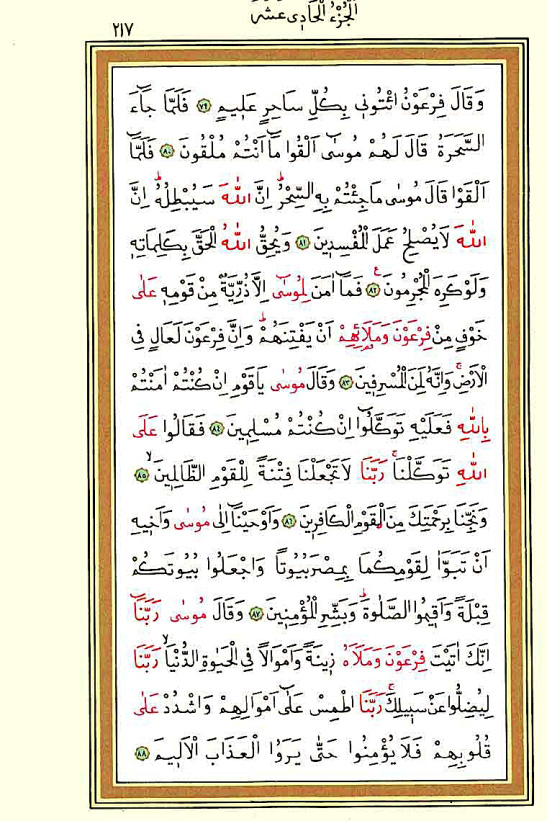 اَلْجُزْءُ الْحَادِي عَشَرَ
٢١٧
وَقَالَ فِرْعَوْنُ ائْتُونِي بِكُلِّ سَاحِرٍ عَلِيمٍ ٧٩ فَلَمَّا جَاءَ
السَّحَرَةُ قَالَ لَهُمْ مُوسٰى اَلْقُوا مَا اَنْتُمْ مُلْقُونَ ٨٠ فَلَمَّا
اَلْقَوْا قَالَ مُوسٰى مَا جِئْتُمْ بِهِ السِّحْرُ اِنَّ اللّٰهَ سَيُبْطِلُهُ اِنَّ
اللّٰهَ لَا يُصْلِحُ عَمَلَ الْمُفْسِدِينَ ٨١ وَيُحِقُّ اللّٰهُ الْحَقَّ بِكَلِمَاتِهِ
وَلَوْ كَرِهَ الْمُجْرِمُونَ ٨٢ فَمَا اٰمَنَ لِمُوسٰى اِلَّا ذُرِّيَّةٌ مِنْ قَوْمِهِ عَلٰى
خَوْفٍ مِنْ فِرْعَوْنَ وَمَلَائِهِمْ اَنْ يَفْتِنَهُمْ وَاِنَّ فِرْعَوْنَ لَعَالٍ فِي
الْاَرْضِ وَاِنَّهُ لَمِنَ الْمُسْرِفِينَ ٨٣ وَقَالَ مُوسٰى يَا قَوْمِ اِنْ كُنْتُمْ اٰمَنْتُمْ
بِاللّٰهِ فَعَلَيْهِ تَوَكَّلُوا اِنْ كُنْتُمْ مُسْلِمِينَ ٨٤ فَقَالُوا عَلَى
اللّٰهِ تَوَكَّلْنَا رَبَّنَا لَا تَجْعَلْنَا فِتْنَةً لِلْقَوْمِ الظَّالِمِينَ ٨٥
وَنَجِّنَا بِرَحْمَتِكَ مِنَ الْقَوْمِ الْكَافِرِينَ ٨٦ وَاَوْحَيْنَا اِلٰى مُوسٰى وَاَخِيهِ
اَنْ تَبَوَّاٰ لِقَوْمِكُمَا بِمِصْرَ بُيُوتًا وَاجْعَلُوا بُيُوتَكُمْ
قِبْلَةً وَاَقِيمُوا الصَّلٰوةَ وَبَشِّرِ الْمُؤْمِنِينَ ٨٧ وَقَالَ مُوسٰى رَبَّنَا
اِنَّكَ اٰتَيْتَ فِرْعَوْنَ وَمَلَاَهُ زِينَةً وَاَمْوَالًا فِي الْحَيٰوةِ الدُّنْيَا رَبَّنَا
لِيُضِلُّوا عَنْ سَبِيلِكَ رَبَّنَا اطْمِسْ عَلٰى اَمْوَالِهِمْ وَاشْدُدْ عَلٰى
قُلُوبِهِمْ فَلَا يُؤْمِنُوا حَتّٰى يَرَوُا الْعَذَابَ الْاَلِيمَ ٨٨